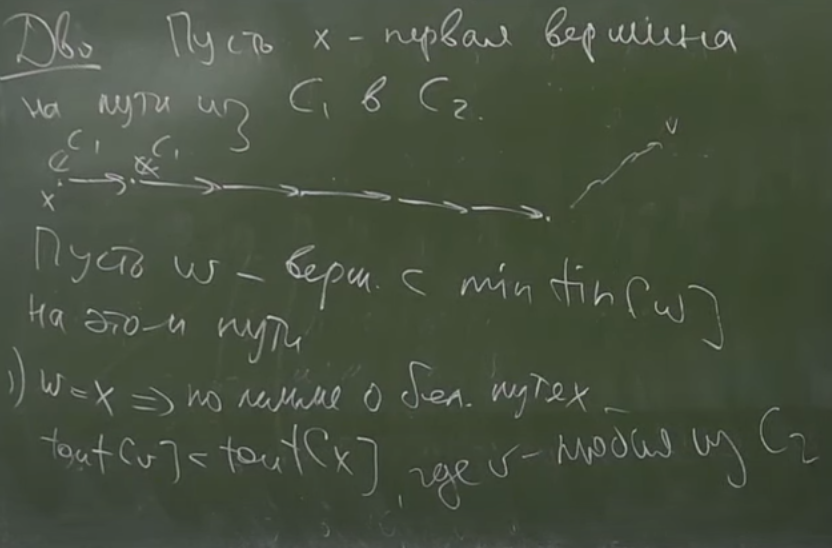 Док-во Пусть x - первая вершина
на пути из C₁ в C₂.
∈ C₁ ∉ C₁ v
x
Пусть w - верш. с min tin[w]
на этом пути
1) w=x ⇒ по лемме о бел. путях
tout[v] < tout[x], где v - любая из C₂